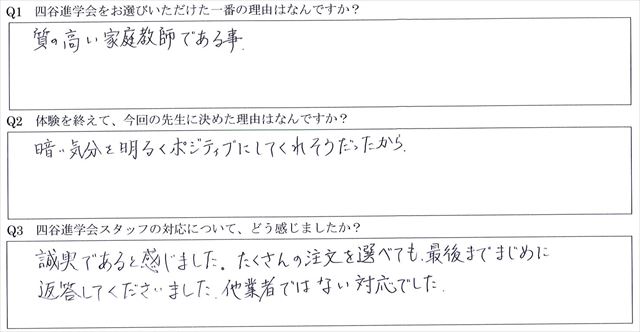 Q1 四谷進学会をお選びいただけた一番の理由はなんですか？
質の高い家庭教師である事.
Q2 体験を終えて、今回の先生に決めた理由はなんですか？
暗い気分を明るくポジティブにしてくれそうだったから.
Q3 四谷進学会スタッフの対応について、どう感じましたか？
誠実であると感じました。たくさんの注文を選べても、最後までまじめに
返答してくださいました. 他業者ではない対応でした.